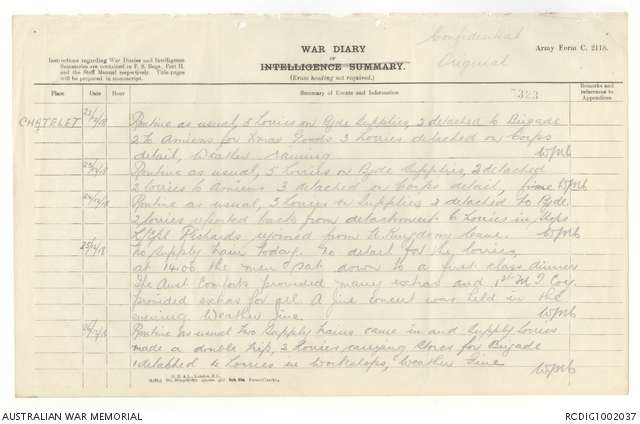 Confidential
WAR DIARY
or
INTELLIGENCE SUMMARY.
(Erase heading not required.)
Original
Army Form C. 2118.
Instructions regarding War Diaries and Intelligence
Summaries are contained in F. S. Regs., Part II.
and the Staff Manual respectively. Title pages
will be prepared in manuscript.
Place Date Hour Summary of Events and Information Remarks and references to Appendices
CHATELET 22/12/18 Routine as usual, 5 Lorries on Bgde Supplies, 2 detached to Brigade
2 to Amiens for Xmas Goods 3 Lorries detached on Corps
detail, Weather raining
23/12/18 Routine as usual, 5 Lorries on Bgde Supplies, 2 detached
2 lorries to Amiens 3 detached on Corps detail, fine
24/12/18 Routine as usual, 3 Lorries on Supplies 2 detached to Bgde.
2 lorries reported back from detachment 6 Lorries in Shops
L/Cpl Richards rejoined from U. Kingdom leave.
25/12/18 No Supply train today. No detail for the lorries,
at 14.00 the men sat down to a first class dinner
The Aust Comforts provided many extras and 1st M T Coy
provided extras for all A fine concert was held in the
evening. Weather fine.
26/12/18 Routine as usual Two Supply trains came in and Supply Lorries
made a double trip, 3 Lorries carrying Stores for Brigade
1 detached 4 Lorries in Workshops, Weather Fine
AUSTRALIAN WAR MEMORIAL
RCDIG1002037